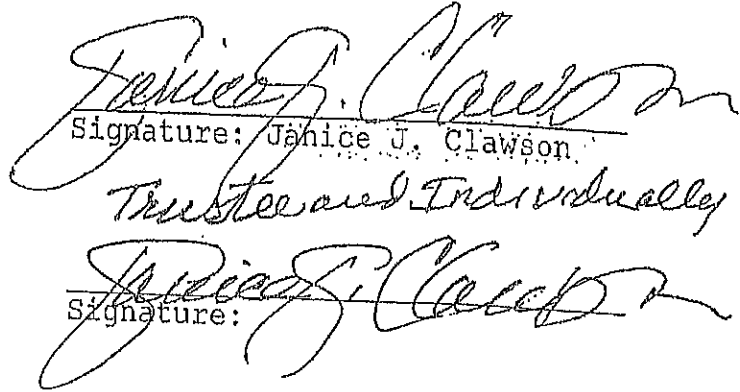 Janice J. Clawson
Signature: Janice J. Clawson
Trustee and Individually
Janice J. Clawson
Signature: